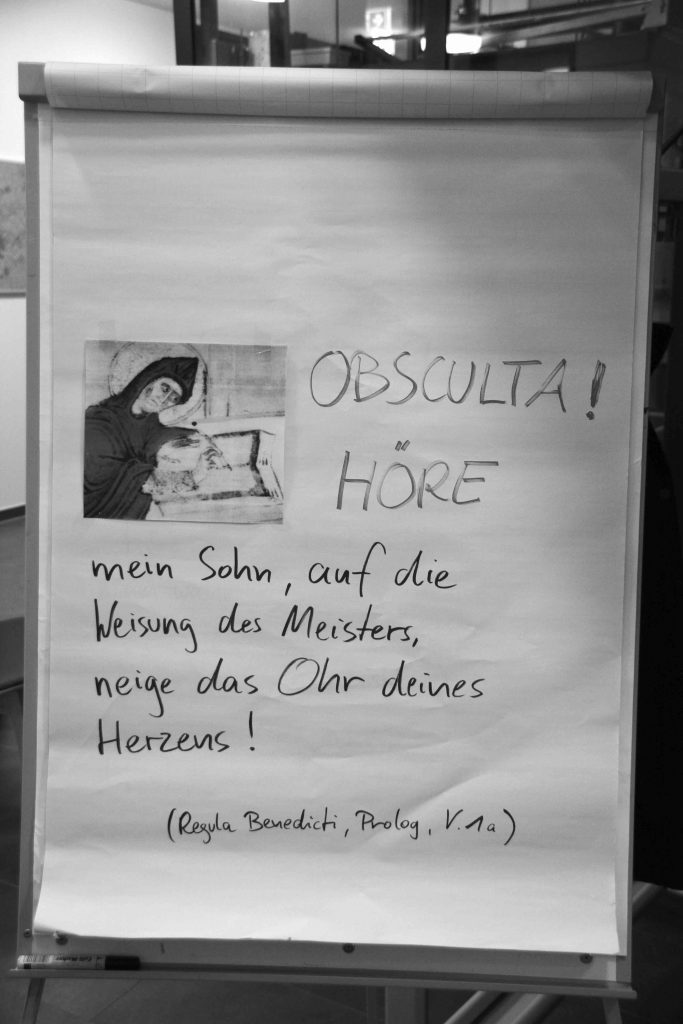 OBSCULTA!
HÖRE
mein Sohn, auf die
Weisung des Meisters,
neige das Ohr deines
Herzens!
(Regula Benedicti, Prolog, V.1a)